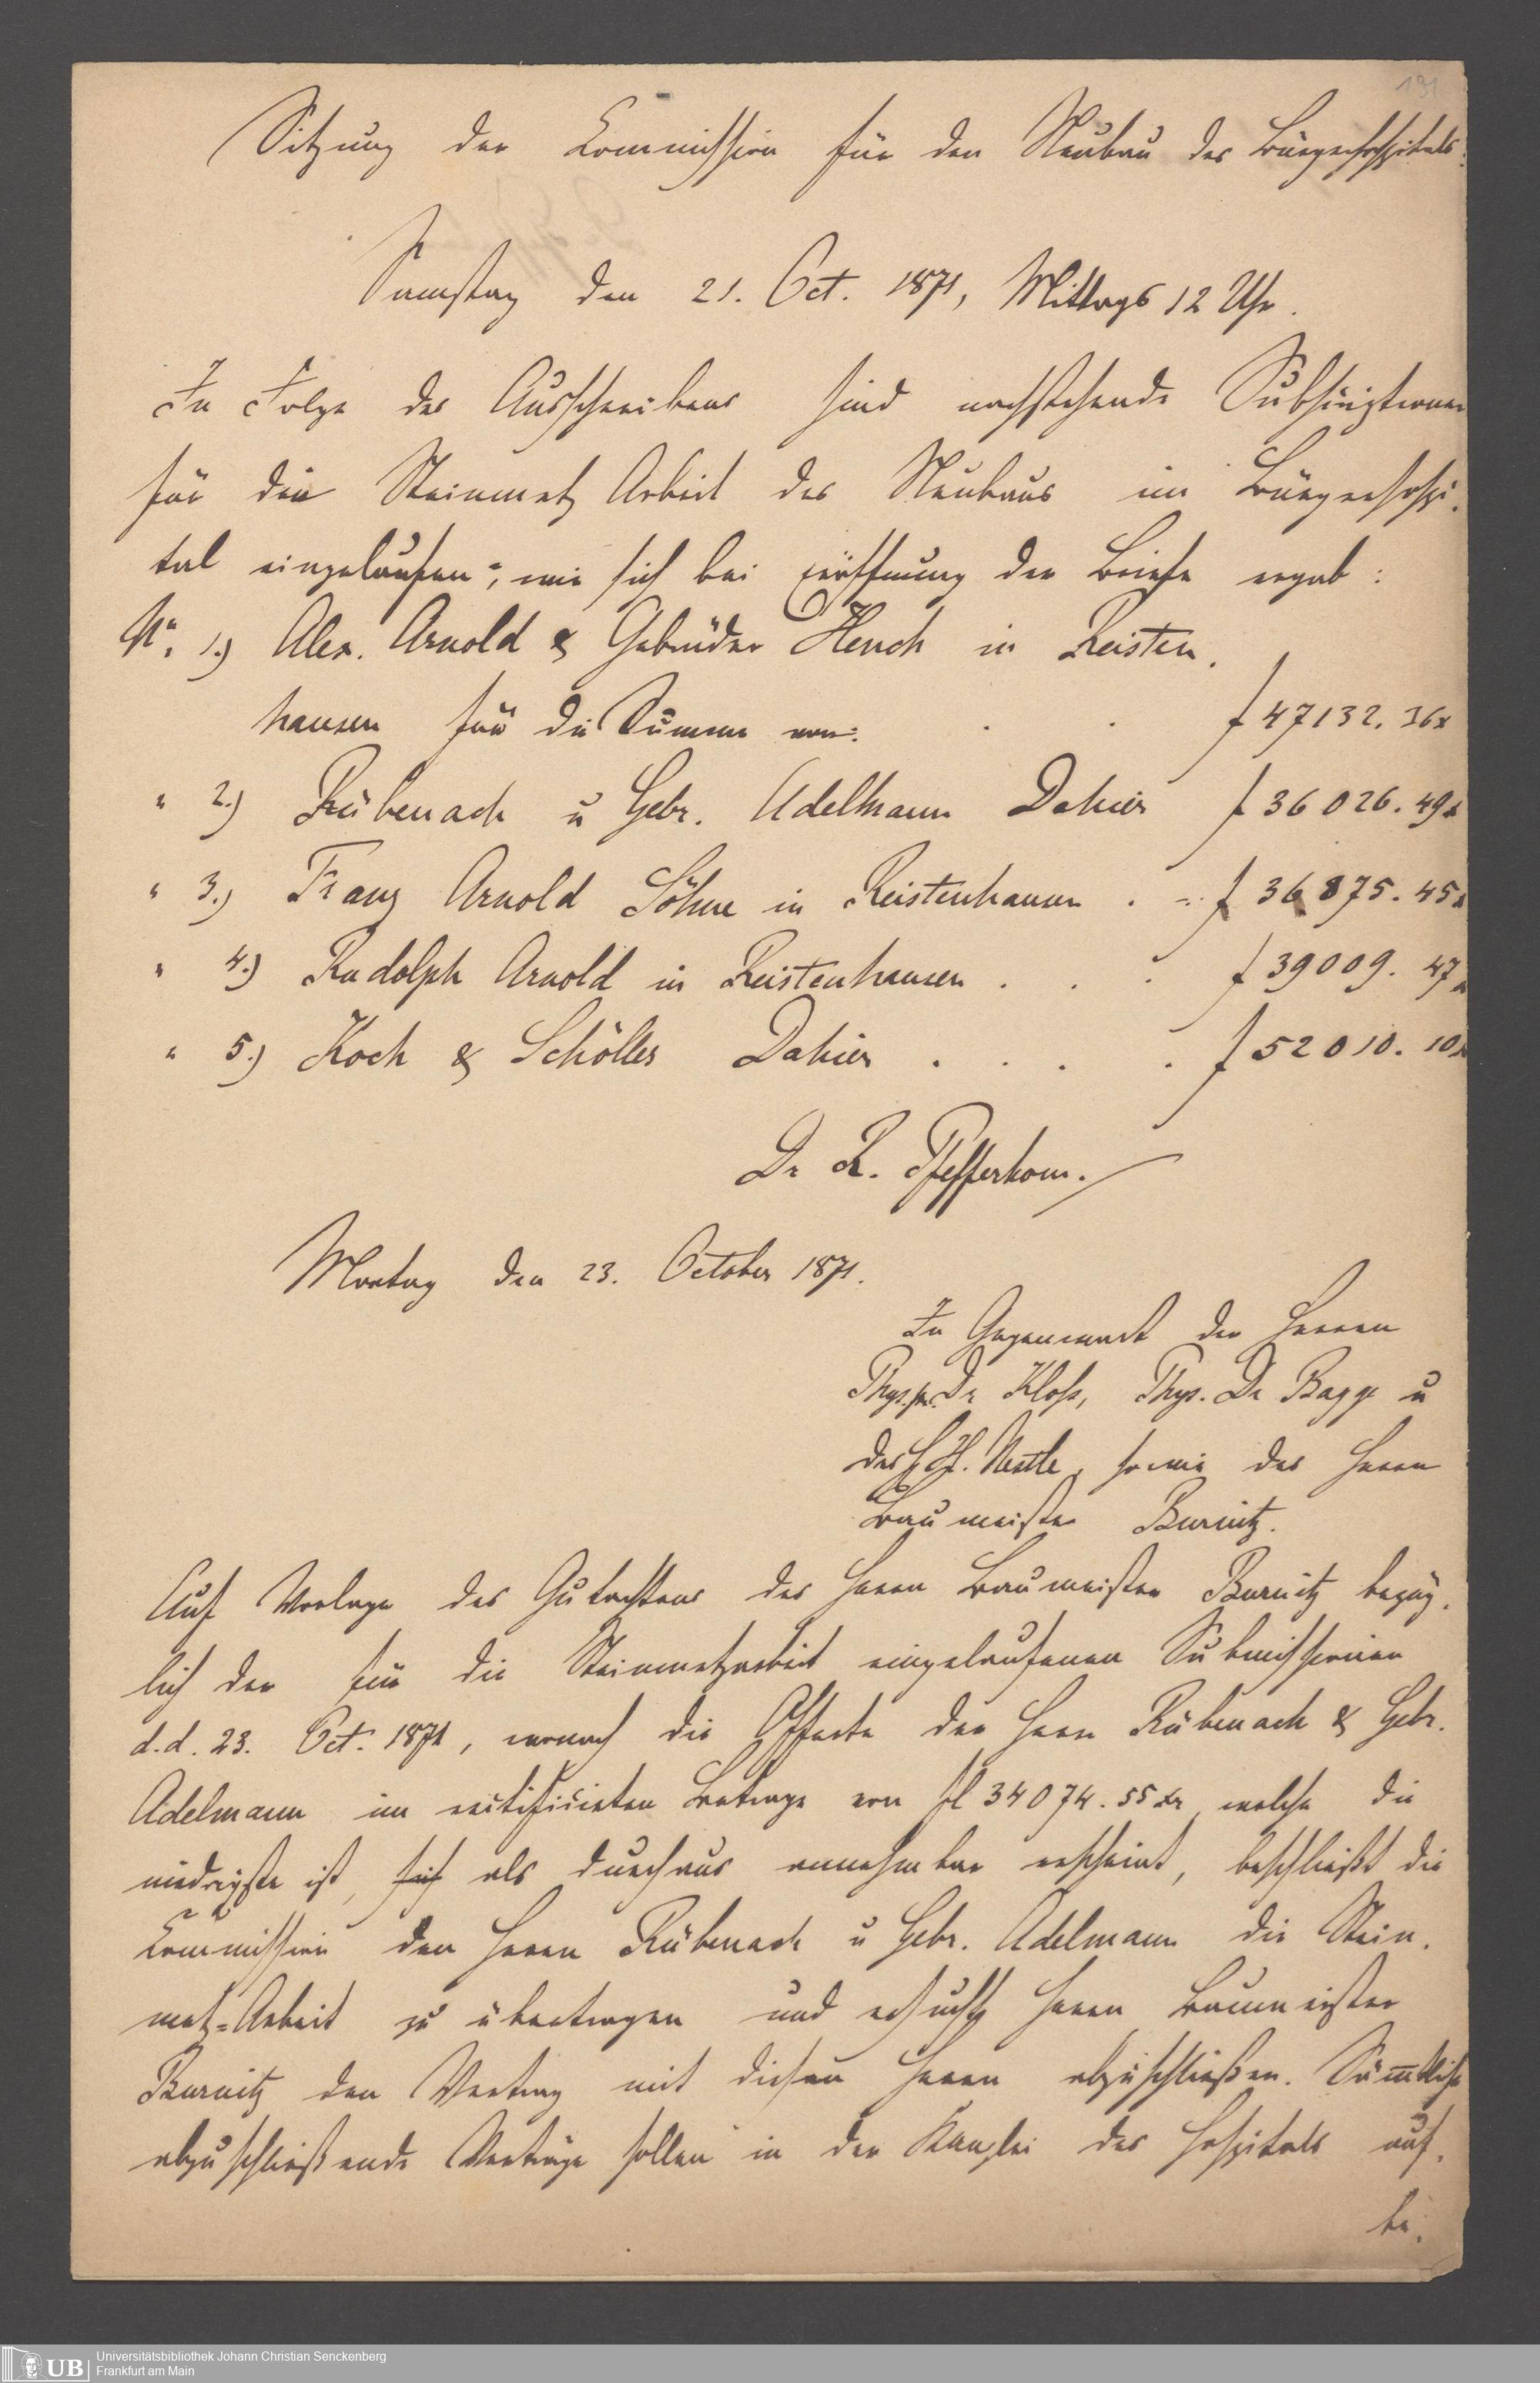 191
Sitzung der Commission für den Neubau des Bürgerhospitals.
Samstag den 21. Oct. 1871, Mittags 12 Uhr.
In Folge des Ausschreibens sind nachstehende
für die Steinmetz Arbeit des Neubaus im Bürgerhospi-
tal eingelaufen, wie sich bei Eröffnung der Briefe ergab:
No. 1.) Alex. Arnold & Gebrüder Hench in Reisten-
hausen für die Summe von: . . f 47132. 36x
" 2.) Rübenach u Gebr. Adelmann Dahier f 36026. 49x
" 3.) Franz Arnold Söhne in Reistenhausen . . f 36875. 45x
" 4.) Rudolph Arnold in Reistenhausen . . . f 39009. 47x
" 5.) Koch & Schölles Dahier . . . . f 52010. 10x
Dr R. Pfefferkorn.
Montag den 23. October 1871.
In Gegenwart der Herren
Dr Kloß, Phys. Dr Bagge u
des H. Nestle, sowie des Herrn
Baumeister Burnitz.
Auf Vorlage des Gutachtens des Herrn Baumeister Burnitz bezüg-
lich der für die Steinmetzarbeit eingelaufenen Submissionen
d.d. 23. Oct. 1871, wonach die Offerte der Herrn Rübenach & Gebr.
Adelmann im rectificirten Betrage von fl 34074. 55 xr, welche die
niedrigste ist, sich als durchaus annehmbar erscheint, beschließt die
Commission den Herrn Rübenach u Gebr. Adelmann die Stein-
metz-Arbeit zu übertragen und ersucht Herrn Baumeister
Burnitz den Vertrag mit diesen Herrn abzuschließen. Sämtliche
abzuschließende Verträge sollen in der Kanzlei des Hospitals auf-
be-
UB
Universitätsbibliothek Johann Christian Senckenberg
Frankfurt am Main